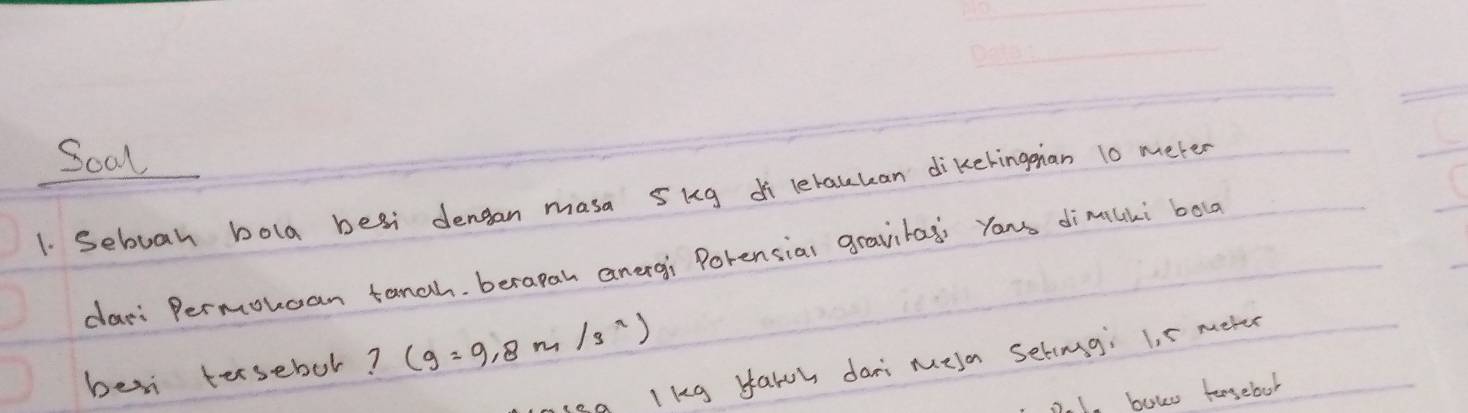 No
Date:
Soal
1. Sebuah bola besi dengan masa 5 kg di letakkan diketinggian 10 meter
dari Permukaan tanah. berapah energi Potensial gravitasi Yang dimiliki bola
besi tersebut? (g = 9,8 m/s²)
1 kg jatuh dari meja setinggi 1,5 meter
buku tersebut